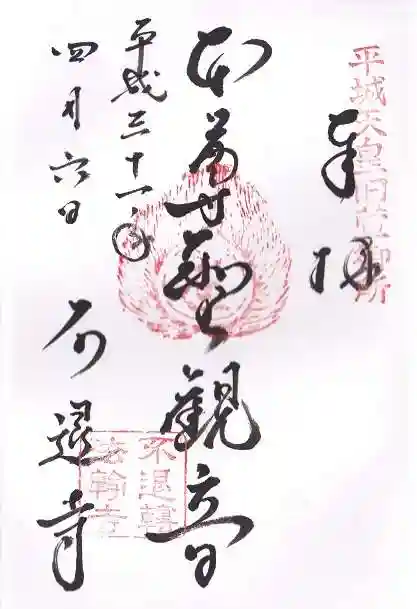 平城天皇旧萱御所
奉拝
本尊聖観音
平成三十一年
四月六日
不退寺
不退轉
法輪寺